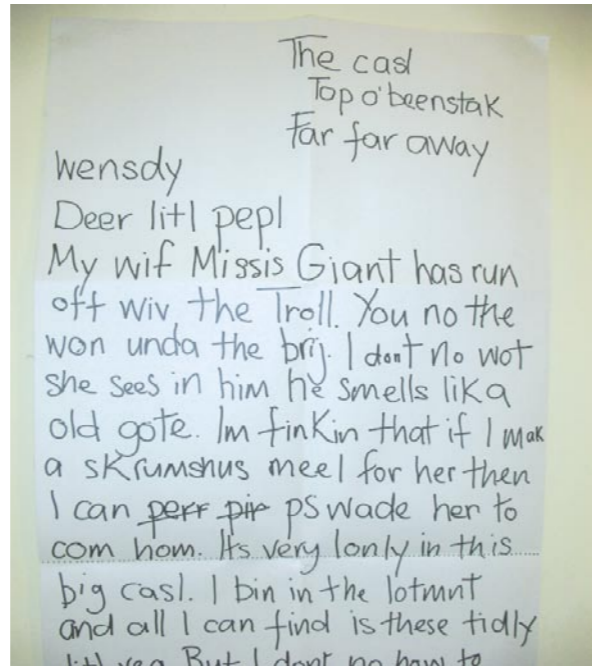 The casl
Top o'beenstak
Far far away
wensdy
Deer litl pepl
My wif Missis Giant has run
off wiv the Troll. You no the
won unda the brij. I dont no wot
she sees in him he smells lik a
old gote. Im finkin that if I mak
a skrumshus meel for her then
I can perr pir pswade her to
com hom. Its very lonly in this
big casl. I bin in the lotmnt
and all I can find is these tidly
litl veg. But I dont no how to